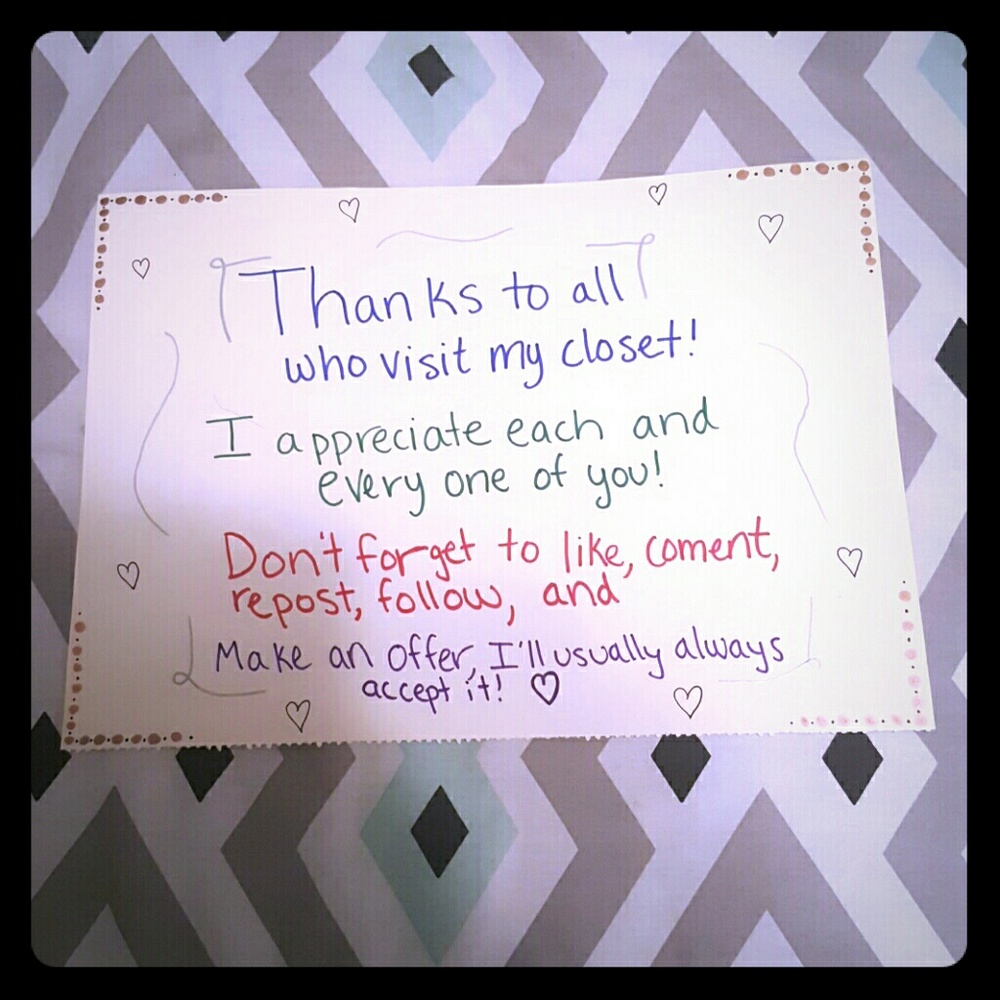 Thanks to all
who visit my closet!
I appreciate each and
every one of you!
Don't forget to like, coment,
repost, follow, and
Make an offer, I'll usually always
accept it! ♡